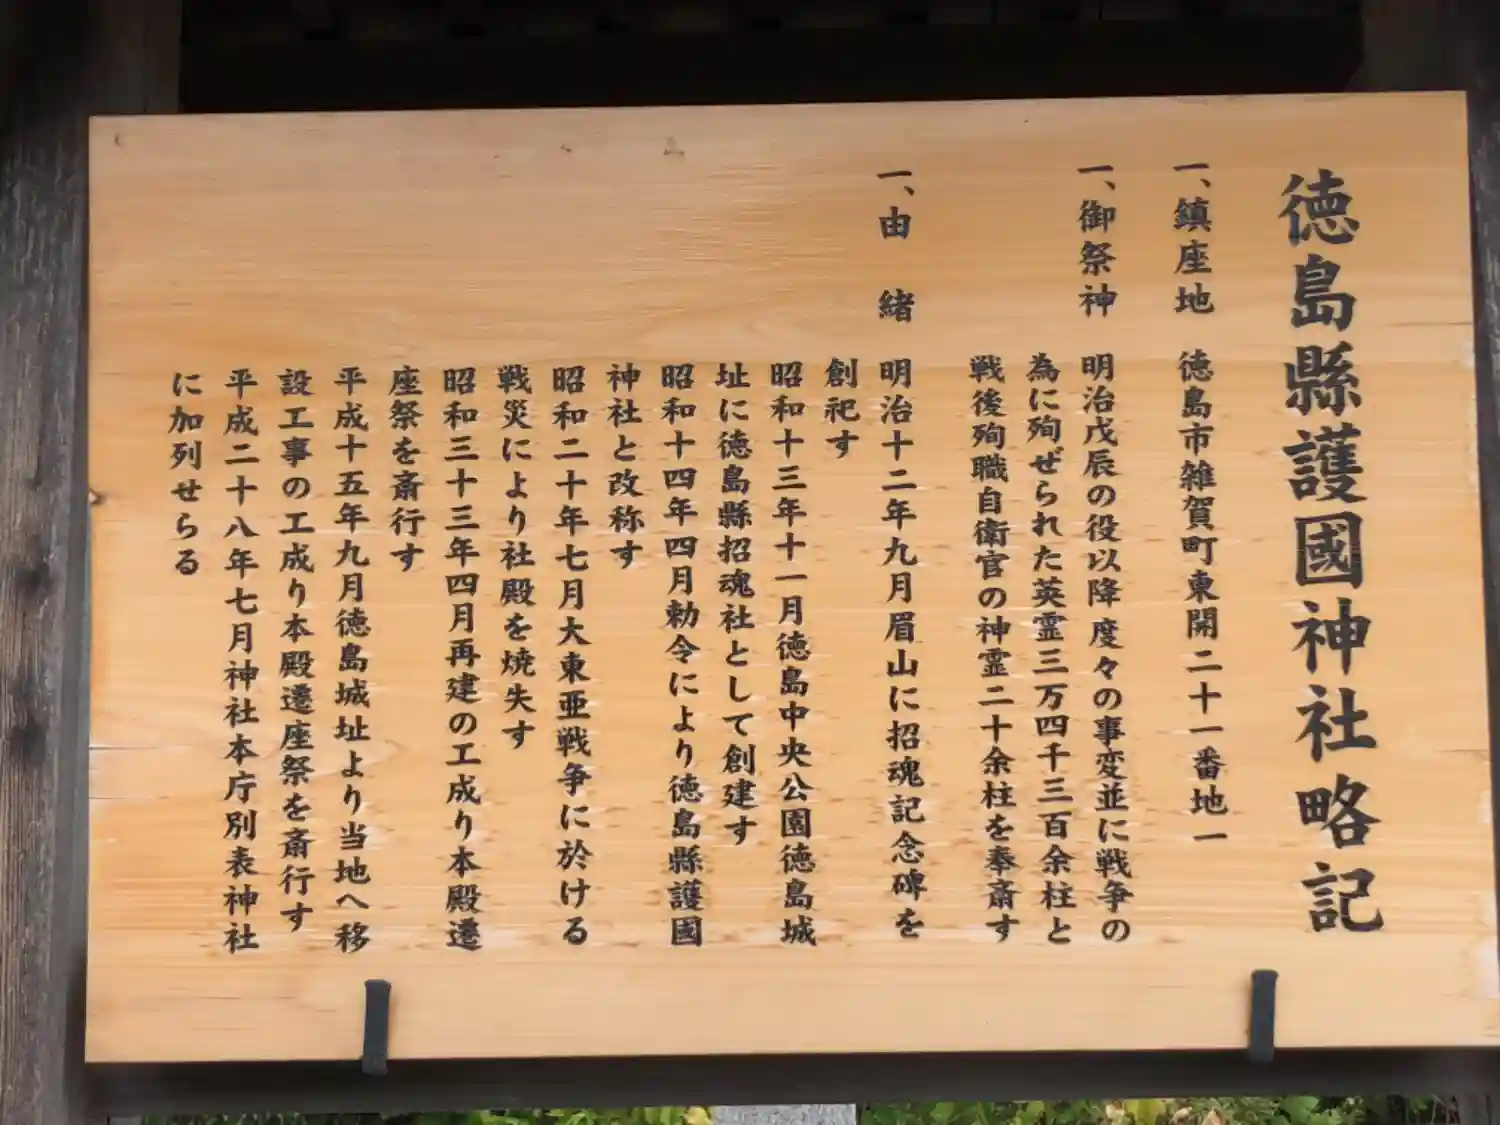 徳島縣護國神社略記
一、鎮座地　徳島市雑賀町東開二十一番地一
一、御祭神　明治戊辰の役以降度々の事変並に戦争の
為に殉ぜられた英霊三万四千三百余柱と
戦後殉職自衛官の神霊二十余柱を奉斎す
一、由　緒　明治十二年九月眉山に招魂記念碑を
創祀す
昭和十三年十一月徳島中央公園徳島城
址に徳島縣招魂社として創建す
昭和十四年四月勅令により徳島縣護國
神社と改称す
昭和二十年七月大東亜戦争に於ける
戦災により社殿を焼失す
昭和三十三年四月再建の工成り本殿遷
座祭を斎行す
平成十五年九月徳島城址より当地へ移
設工事の工成り本殿遷座祭を斎行す
平成二十八年七月神社本庁別表神社
に加列せらる